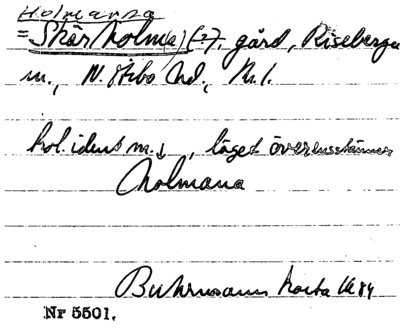 Holmarna
= Skärholm(a) (?), gård, Riseberga
m., N. Åsbo hd., Kr. l.
hol. ident m. ↓, läget överensstämmer
Holmana
Buhrmanns karta 1684
Nr 5501.